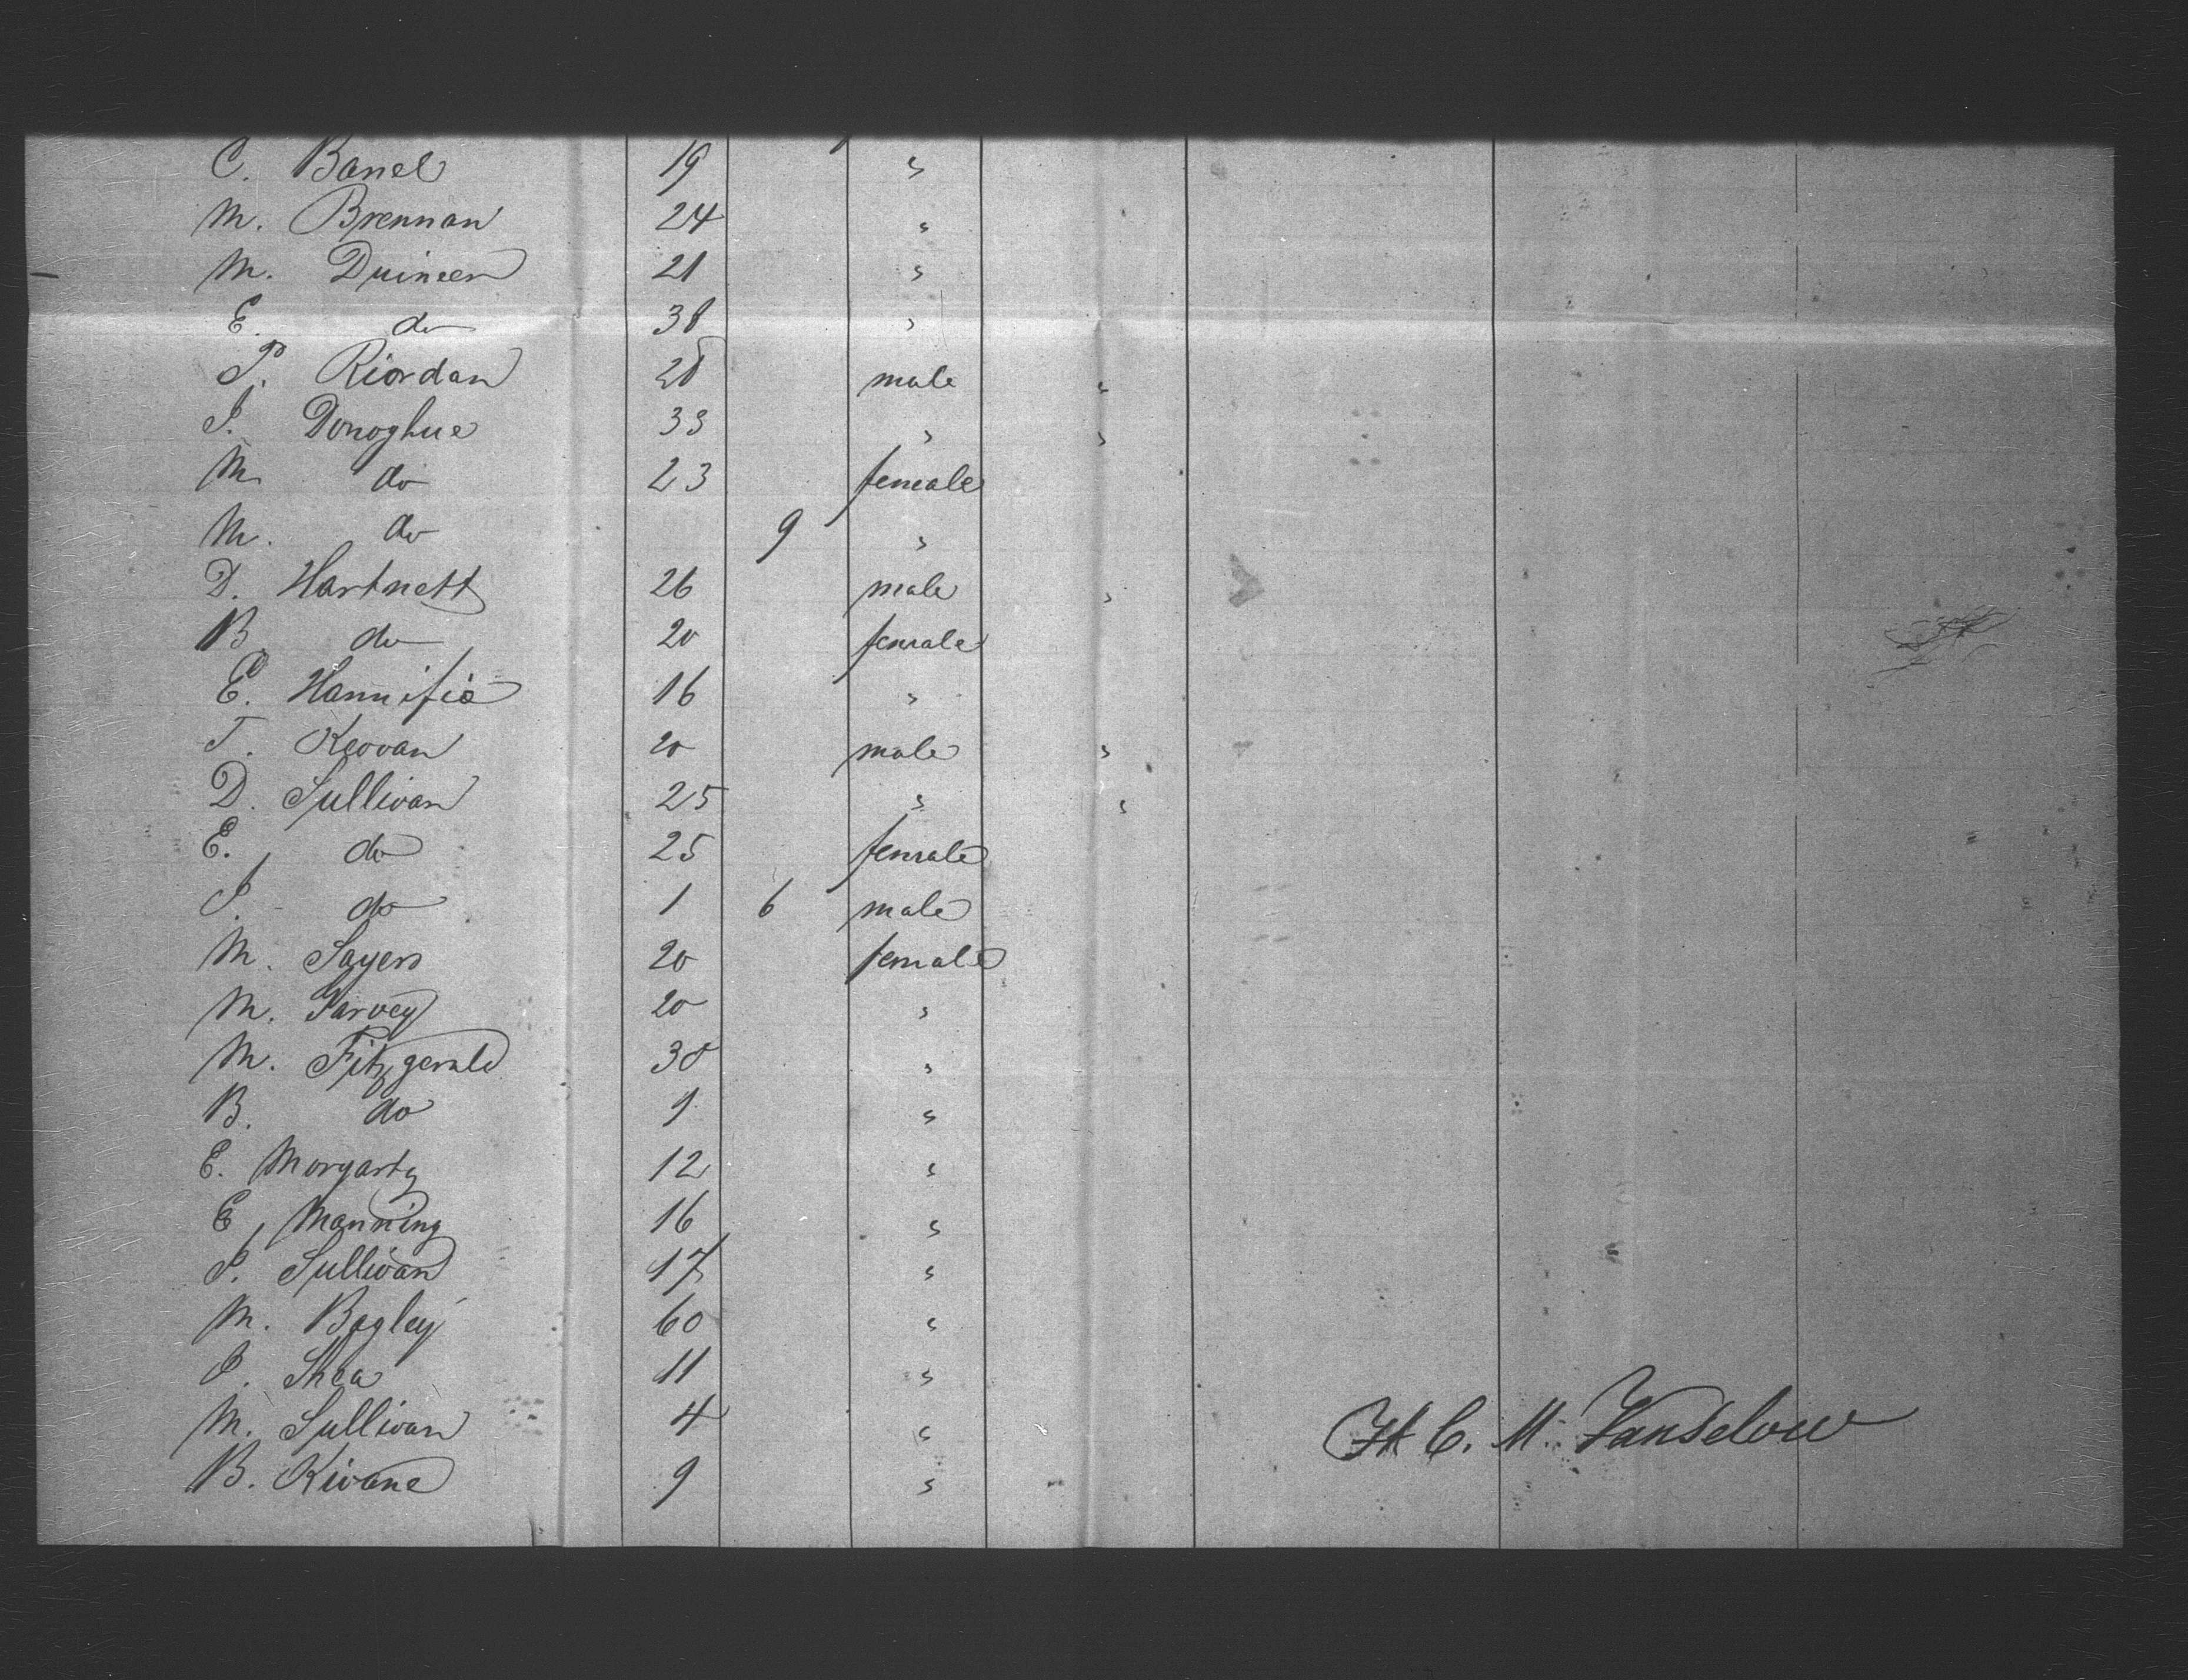 C. Banel 19 "
M. Brennan 24 "
M. Duineen 21 "
E. do 38 "
P. Riordan 28 male "
J. Donoghue 33 " "
M. do 23 female
M. do 9 "
D. Hartnett 26 male "
B. do 20 female
E. Hannifio 16 "
T. Keovan 20 male "
D. Sullivan 25 " "
E. do 25 female
J. do 1 6 male
M. Sayers 20 female
M. Garvey 20 "
M. Fitzgerald 30 "
B. do 9 "
E. Morgarty 12 "
E. Manning 16 "
J. Sullivan 17 "
M. Bagley 60 "
J. Shea 11 "
M. Sullivan 4 "
H C. M. Vanselow
B. Kivane 9 "